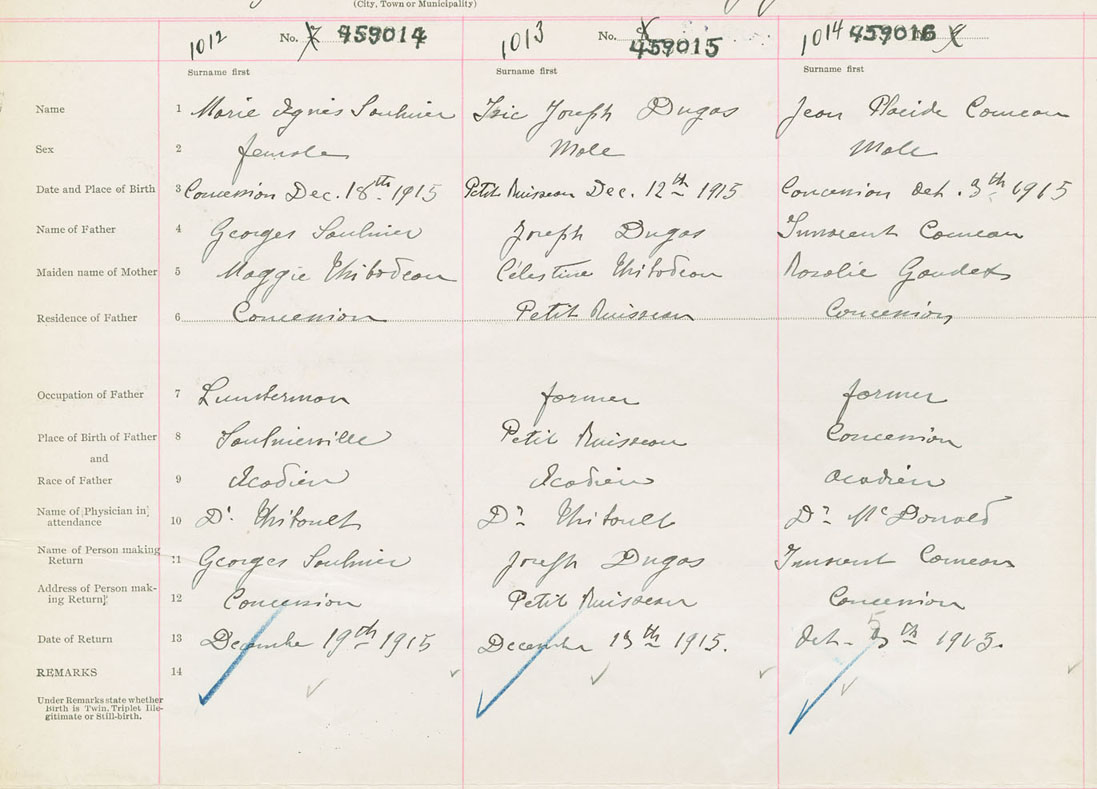 (City, Town or Municipality)
1012 No. 459014 1013 No. 459015 1014 459016
Surname first Surname first Surname first
Name 1 Marie Agnès Saulnier Joseph Dugas Jean Placide Comeau
Sex 2 female Male Male
Date and Place of Birth 3 Concession Dec. 18th 1915 Petit Ruisseau Dec. 12th 1915 Concession Oct. 3th 1915
Name of Father 4 Georges Saulnier Joseph Dugas Innocent Comeau
Maiden name of Mother 5 Maggie Thibodeau Célestine Thibodeau Rosalie Gaudet
Residence of Father 6 Concession Petit Ruisseau Concession
Occupation of Father 7 Lumberman farmer farmer
Place of Birth of Father 8 Saulnierville Petit Ruisseau Concession
and
Race of Father 9 Acadien Acadien Acadien
Name of Physician in
attendance 10 Dr Thibault Dr Thibault Dr McDonald
Name of Person making
Return 11 Georges Saulnier Joseph Dugas Innocent Comeau
Address of Person mak-
ing Return 12 Concession Petit Ruisseau Concession
Date of Return 13 December 19th 1915 December 13th 1915. Oct. 5th
REMARKS 14
Under Remarks state whether
Birth is Twin, Triplet Ille-
gitimate or Still-birth.